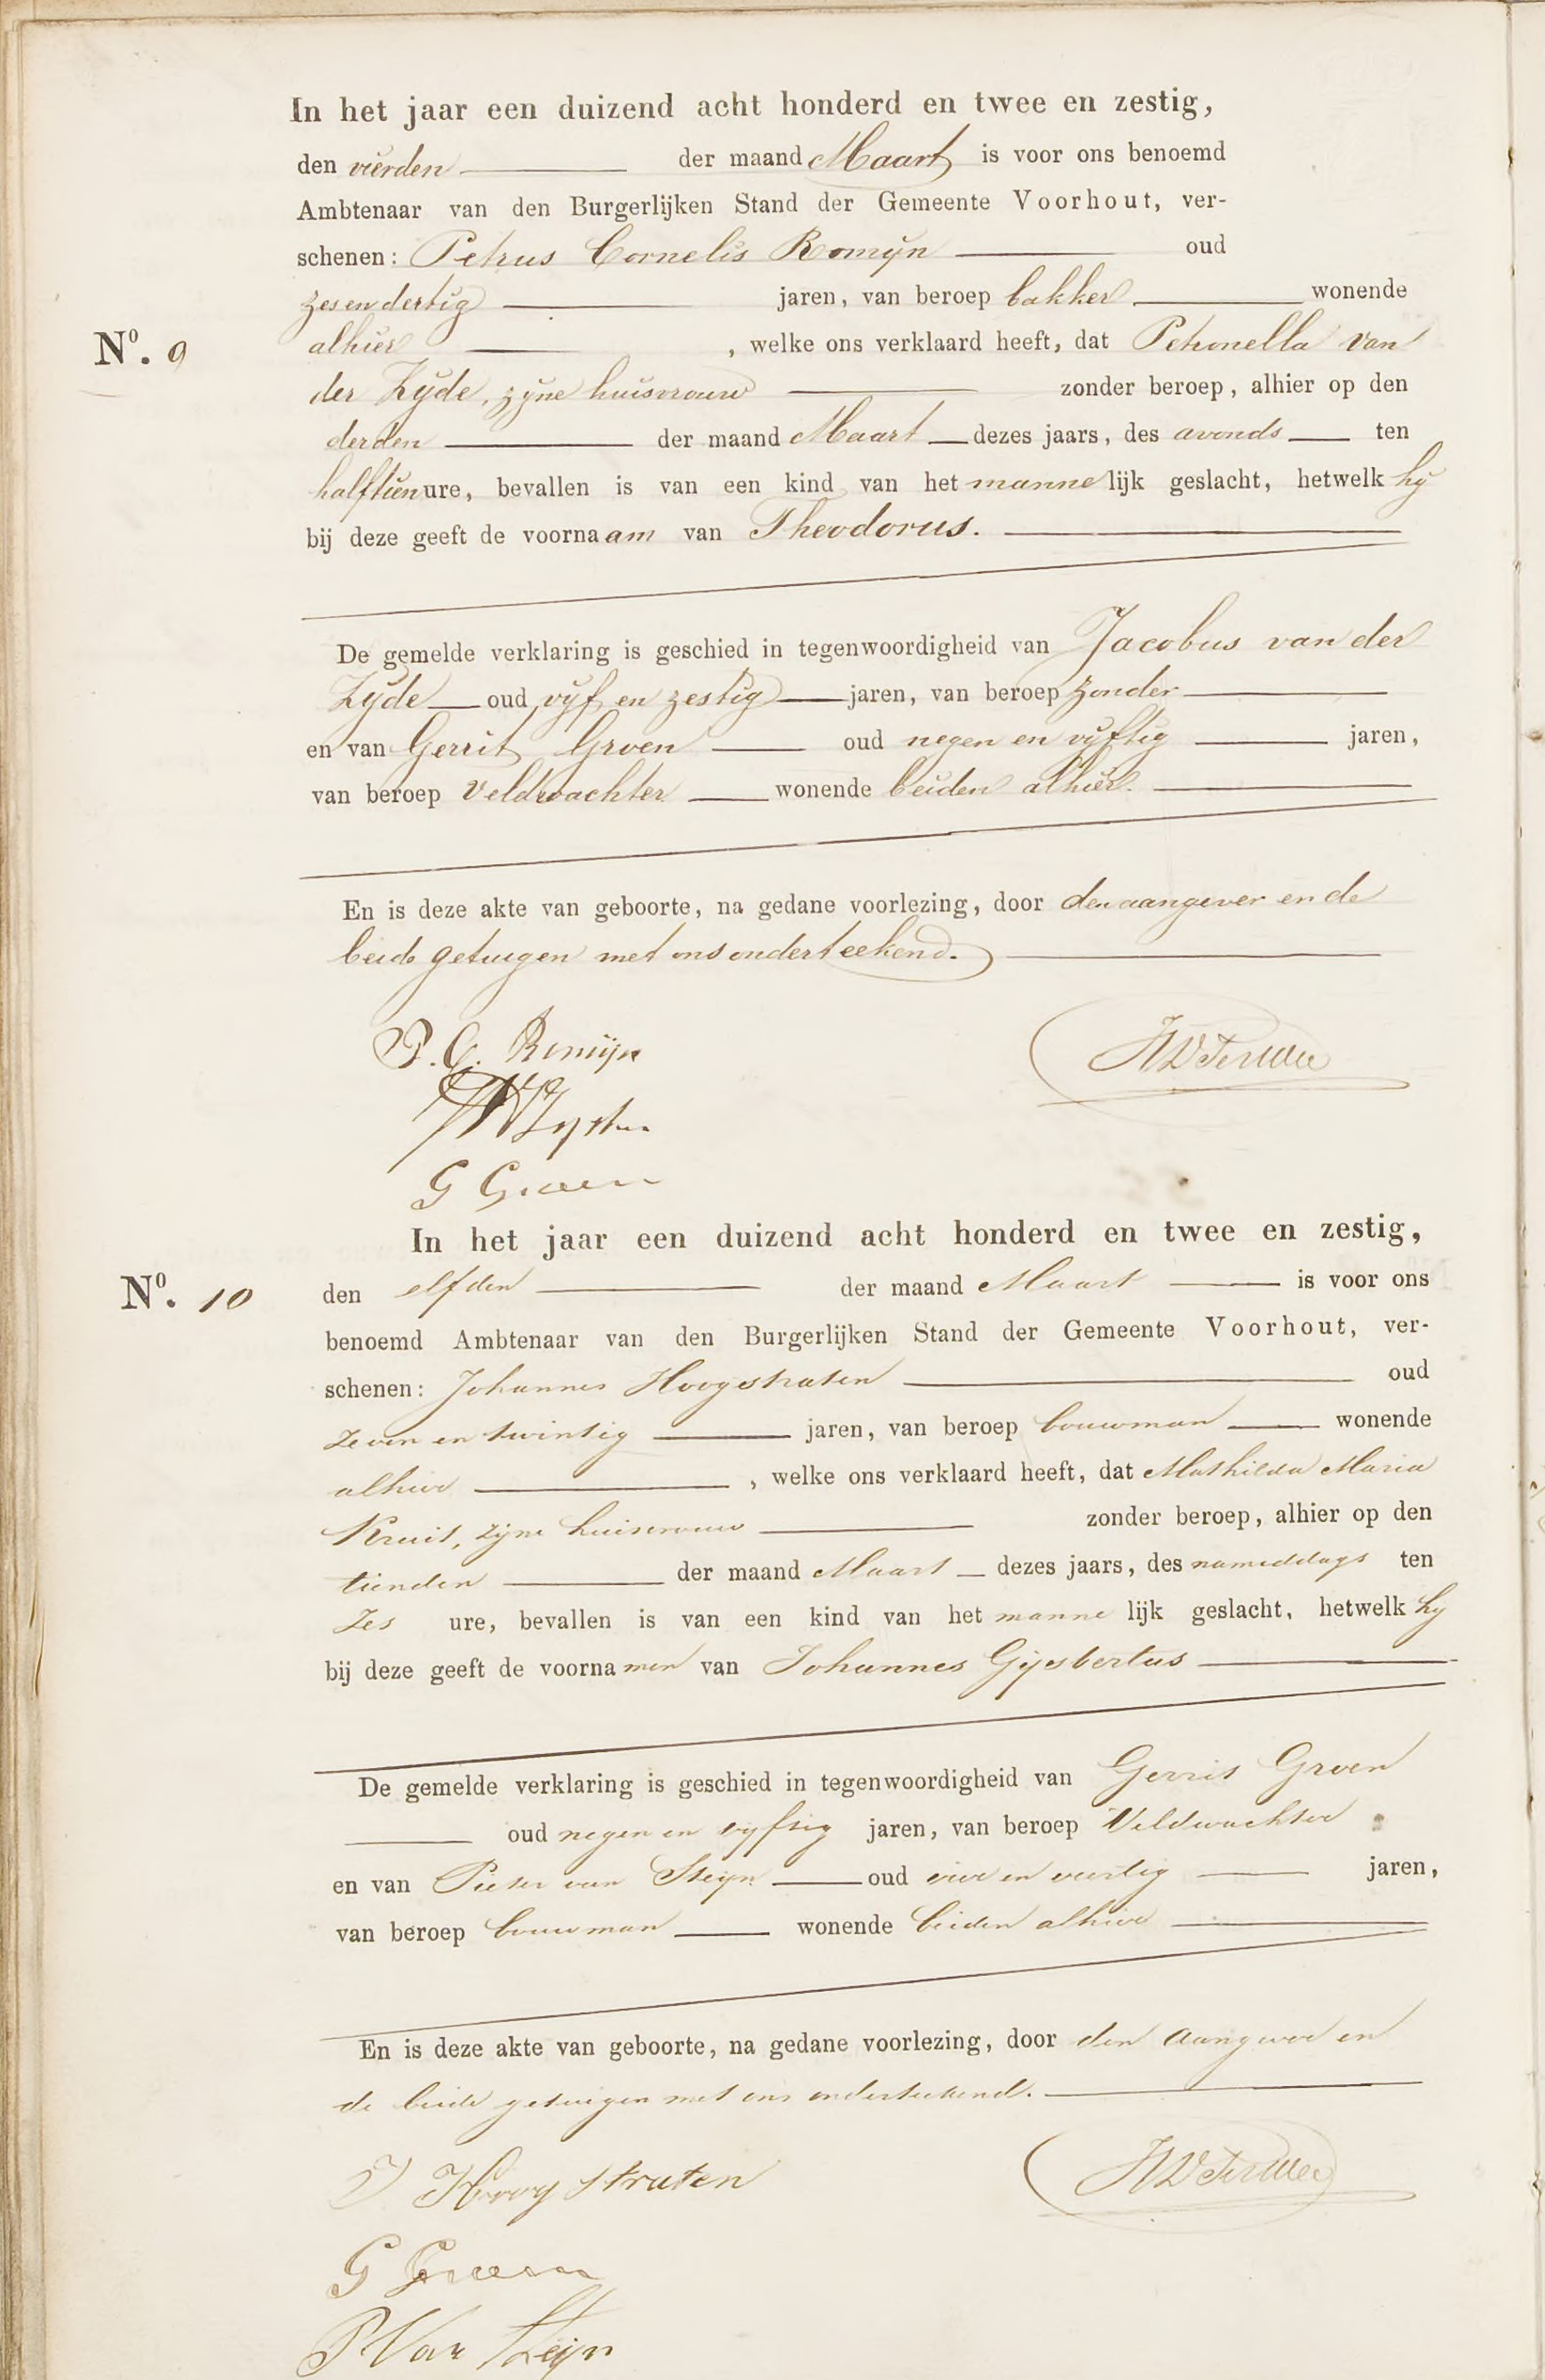 In het jaar een duizend acht honderd en twee en zestig,
den vierden der maand Maart is voor ons benoemd
Ambtenaar van den Burgerlijken Stand der Gemeente Voorhout, ver-
schenen: Petrus Cornelis Romijn oud
zesendertig jaren, van beroep bakker wonende
Nº. 9 alhier , welke ons verklaard heeft, dat Petronella van
der Zijde, zijne huisvrouw zonder beroep, alhier op den
derden der maand Maart dezes jaars, des avonds ten
halftien ure, bevallen is van een kind van het mannelijk geslacht, hetwelk hij
bij deze geeft de voornaam van Theodorus.
De gemelde verklaring is geschied in tegenwoordigheid van Jacobus van der
Zijde oud vijf en zestig jaren, van beroep zonder
en van Gerrit Groen oud negen en vijftig jaren,
van beroep Veldwachter wonende beiden alhier.
En is deze akte van geboorte, na gedane voorlezing, door den aangever en de
beide getuigen met ons onderteekend.
P. C. Romijn
G Groen
In het jaar een duizend acht honderd en twee en zestig,
Nº. 10 den elfden der maand Maart is voor ons
benoemd Ambtenaar van den Burgerlijken Stand der Gemeente Voorhout, ver-
schenen: Johannes Hoogstraten oud
zeven en twintig jaren, van beroep bouwman wonende
alhier , welke ons verklaard heeft, dat Mathilda Maria
Kruit, zijne huisvrouw zonder beroep, alhier op den
tienden der maand Maart dezes jaars, des namiddags ten
zes ure, bevallen is van een kind van het mannelijk geslacht, hetwelk hij
bij deze geeft de voornamen van Johannes Gijsbertus
De gemelde verklaring is geschied in tegenwoordigheid van Gerrit Groen
oud negen en vijftig jaren, van beroep Veldwachter
en van Pieter van Steijn oud vier en veertig jaren,
van beroep bouwman wonende beiden alhier
En is deze akte van geboorte, na gedane voorlezing, door den aangever en
de beide getuigen met ons onderteekend.
J Hoogstraten
G Groen
P Van Steijn